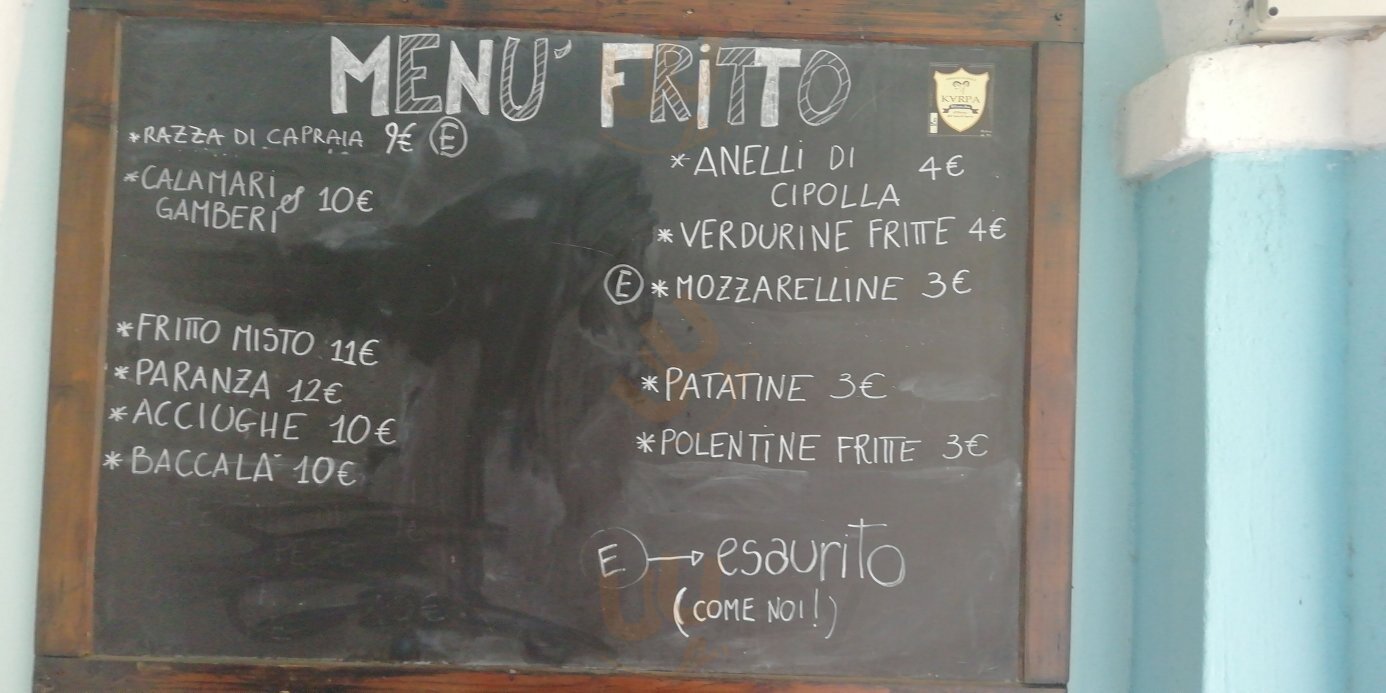 MENU' FRITTO
*RAZZA DI CAPRAIA 9€ (E)
*CALAMARI &
GAMBERI 10€
*FRITTO MISTO 11€
*PARANZA 12€
*ACCIUGHE 10€
*BACCALA' 10€
KARPA
*ANELLI DI
CIPOLLA 4€
*VERDURINE FRITTE 4€
(E) *MOZZARELLINE 3€
*PATATINE 3€
*POLENTINE FRITTE 3€
E → esaurito
(COME NOI!)